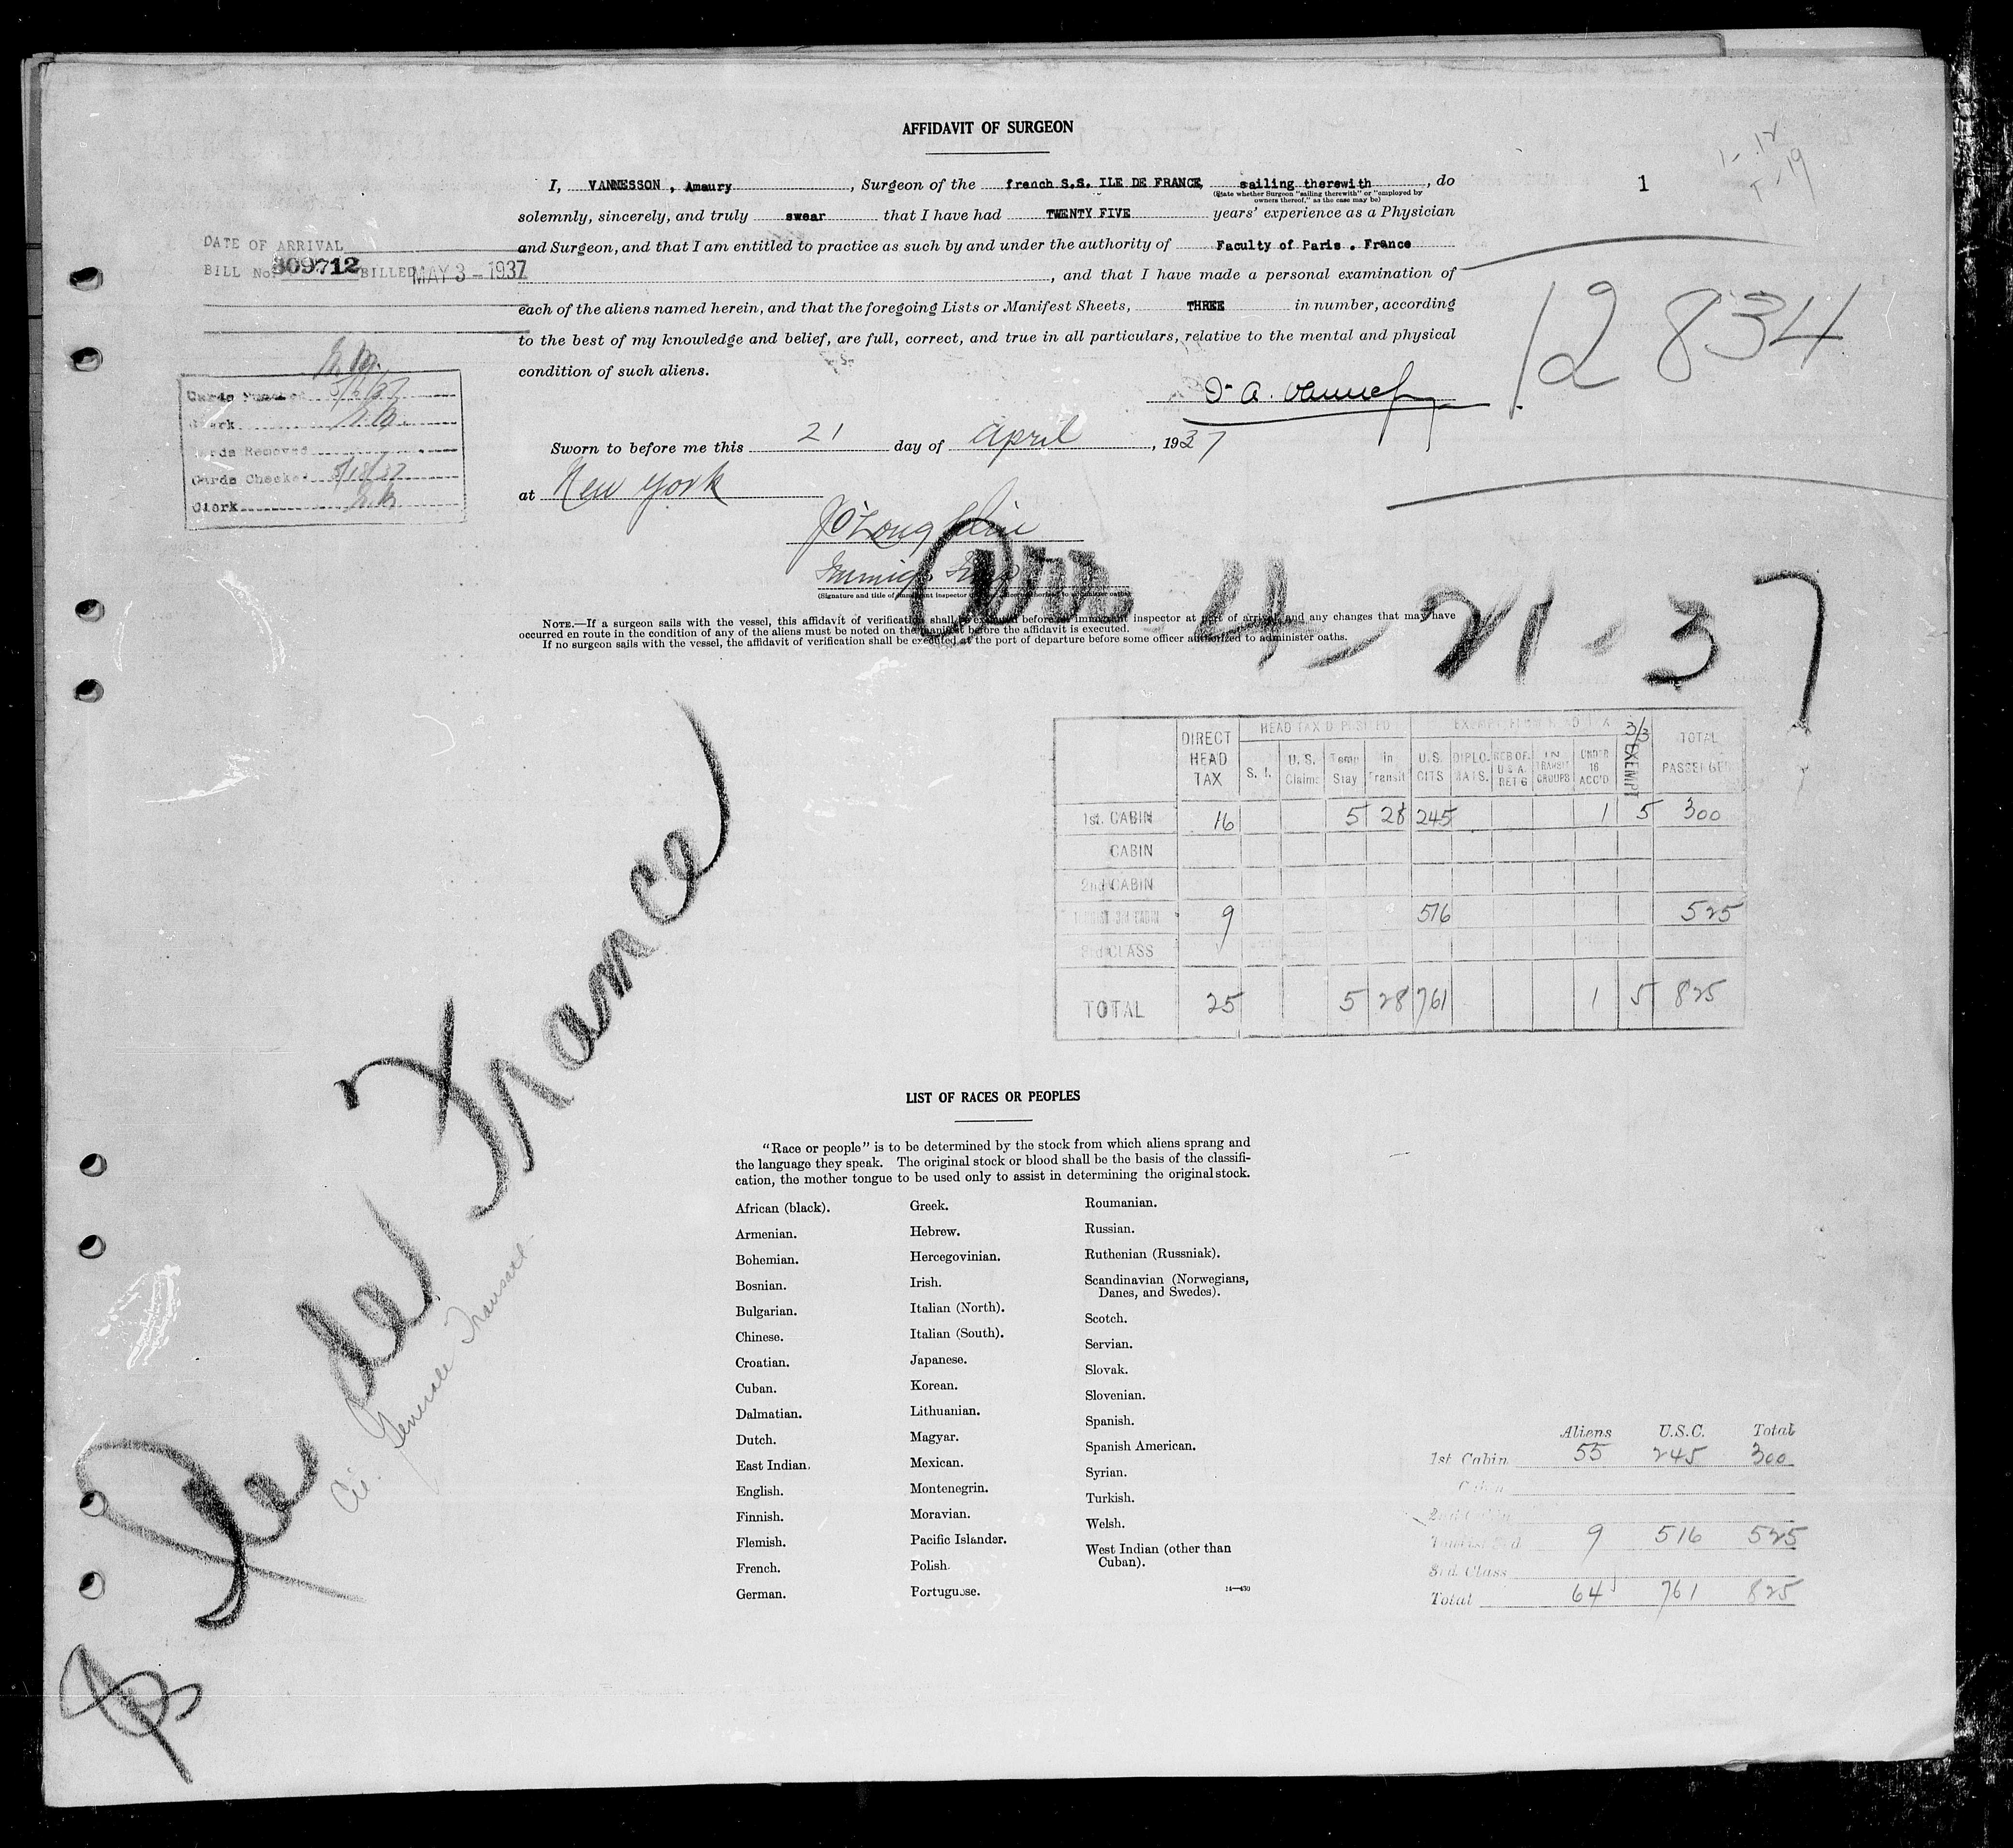 AFFIDAVIT OF SURGEON
1
I, VANNESSON , Amaury , Surgeon of the french S.S. ILE DE FRANCE, sailing therewith , do
(State whether Surgeon "sailing therewith" or "employed by
owners thereof," as the case may be)
solemnly, sincerely, and truly swear that I have had TWENTY FIVE years' experience as a Physician
and Surgeon, and that I am entitled to practice as such by and under the authority of Faculty of Paris . France
, and that I have made a personal examination of
each of the aliens named herein, and that the foregoing Lists or Manifest Sheets, THREE in number, according
to the best of my knowledge and belief, are full, correct, and true in all particulars, relative to the mental and physical
condition of such aliens.
DATE OF ARRIVAL
BILL No. 309712 BILLED MAY 3 - 1937
12834
Cards Punched 5/6/37
Clerk
Cards Removed
Cards Checked 5/18/37
Clerk
Sworn to before me this 21 day of April , 1937
at New York
(Signature and title of immigrant inspector
4-21-37
NOTE.—If a surgeon sails with the vessel, this affidavit of verification shall be executed before an immigrant inspector at port of arrival, and any changes that may have
occurred en route in the condition of any of the aliens must be noted on the manifest before the affidavit is executed.
If no surgeon sails with the vessel, the affidavit of verification shall be executed at the port of departure before some officer authorized to administer oaths.
DIRECT HEAD TAX HEAD TAX DEPOSITED EXEMPT FROM HEAD TAX 3/3 EXEMPT TOTAL PASSENGERS
S. I. U. S. Claims Temp Stay In Transit U.S. CITS DIPLO-MATS. RES OF U S A RET'G IN TRANSIT GROUPS UNDER 16 ACC'D
1st. CABIN 16 5 28 245 1 5 300
CABIN
2nd CABIN
TOURIST 3rd CABIN 9 516 525
3rd CLASS
TOTAL 25 5 28 761 1 5 825
Ile de France
Cie. Generale Transatl.
LIST OF RACES OR PEOPLES
"Race or people" is to be determined by the stock from which aliens sprang and
the language they speak. The original stock or blood shall be the basis of the classifi-
cation, the mother tongue to be used only to assist in determining the original stock.
African (black).
Armenian.
Bohemian.
Bosnian.
Bulgarian.
Chinese.
Croatian.
Cuban.
Dalmatian.
Dutch.
East Indian.
English.
Finnish.
Flemish.
French.
German.
Greek.
Hebrew.
Hercegovinian.
Irish.
Italian (North).
Italian (South).
Japanese.
Korean.
Lithuanian.
Magyar.
Mexican.
Montenegrin.
Moravian.
Pacific Islander.
Polish.
Portuguese.
Roumanian.
Russian.
Ruthenian (Russniak).
Scandinavian (Norwegians,
Danes, and Swedes).
Scotch.
Servian.
Slovak.
Slovenian.
Spanish.
Spanish American.
Syrian.
Turkish.
Welsh.
West Indian (other than
Cuban).
14—430
Aliens U.S.C. Total
1st Cabin 55 245 300
Cabin
2nd Cabin
Tourist 3rd. 9 516 525
3rd. Class
Total 64 761 825